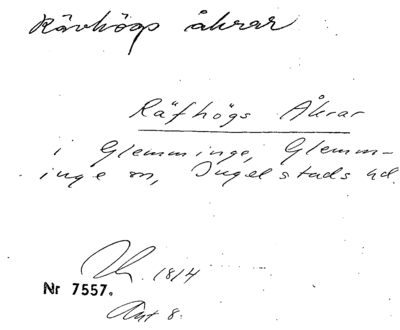 Rävhögs åkrar
Räfhögs Åkrar
i Glemminge, Glemm-
inge sn, Ingelstads hd.
1814
Nr 7557.
Akt 8.